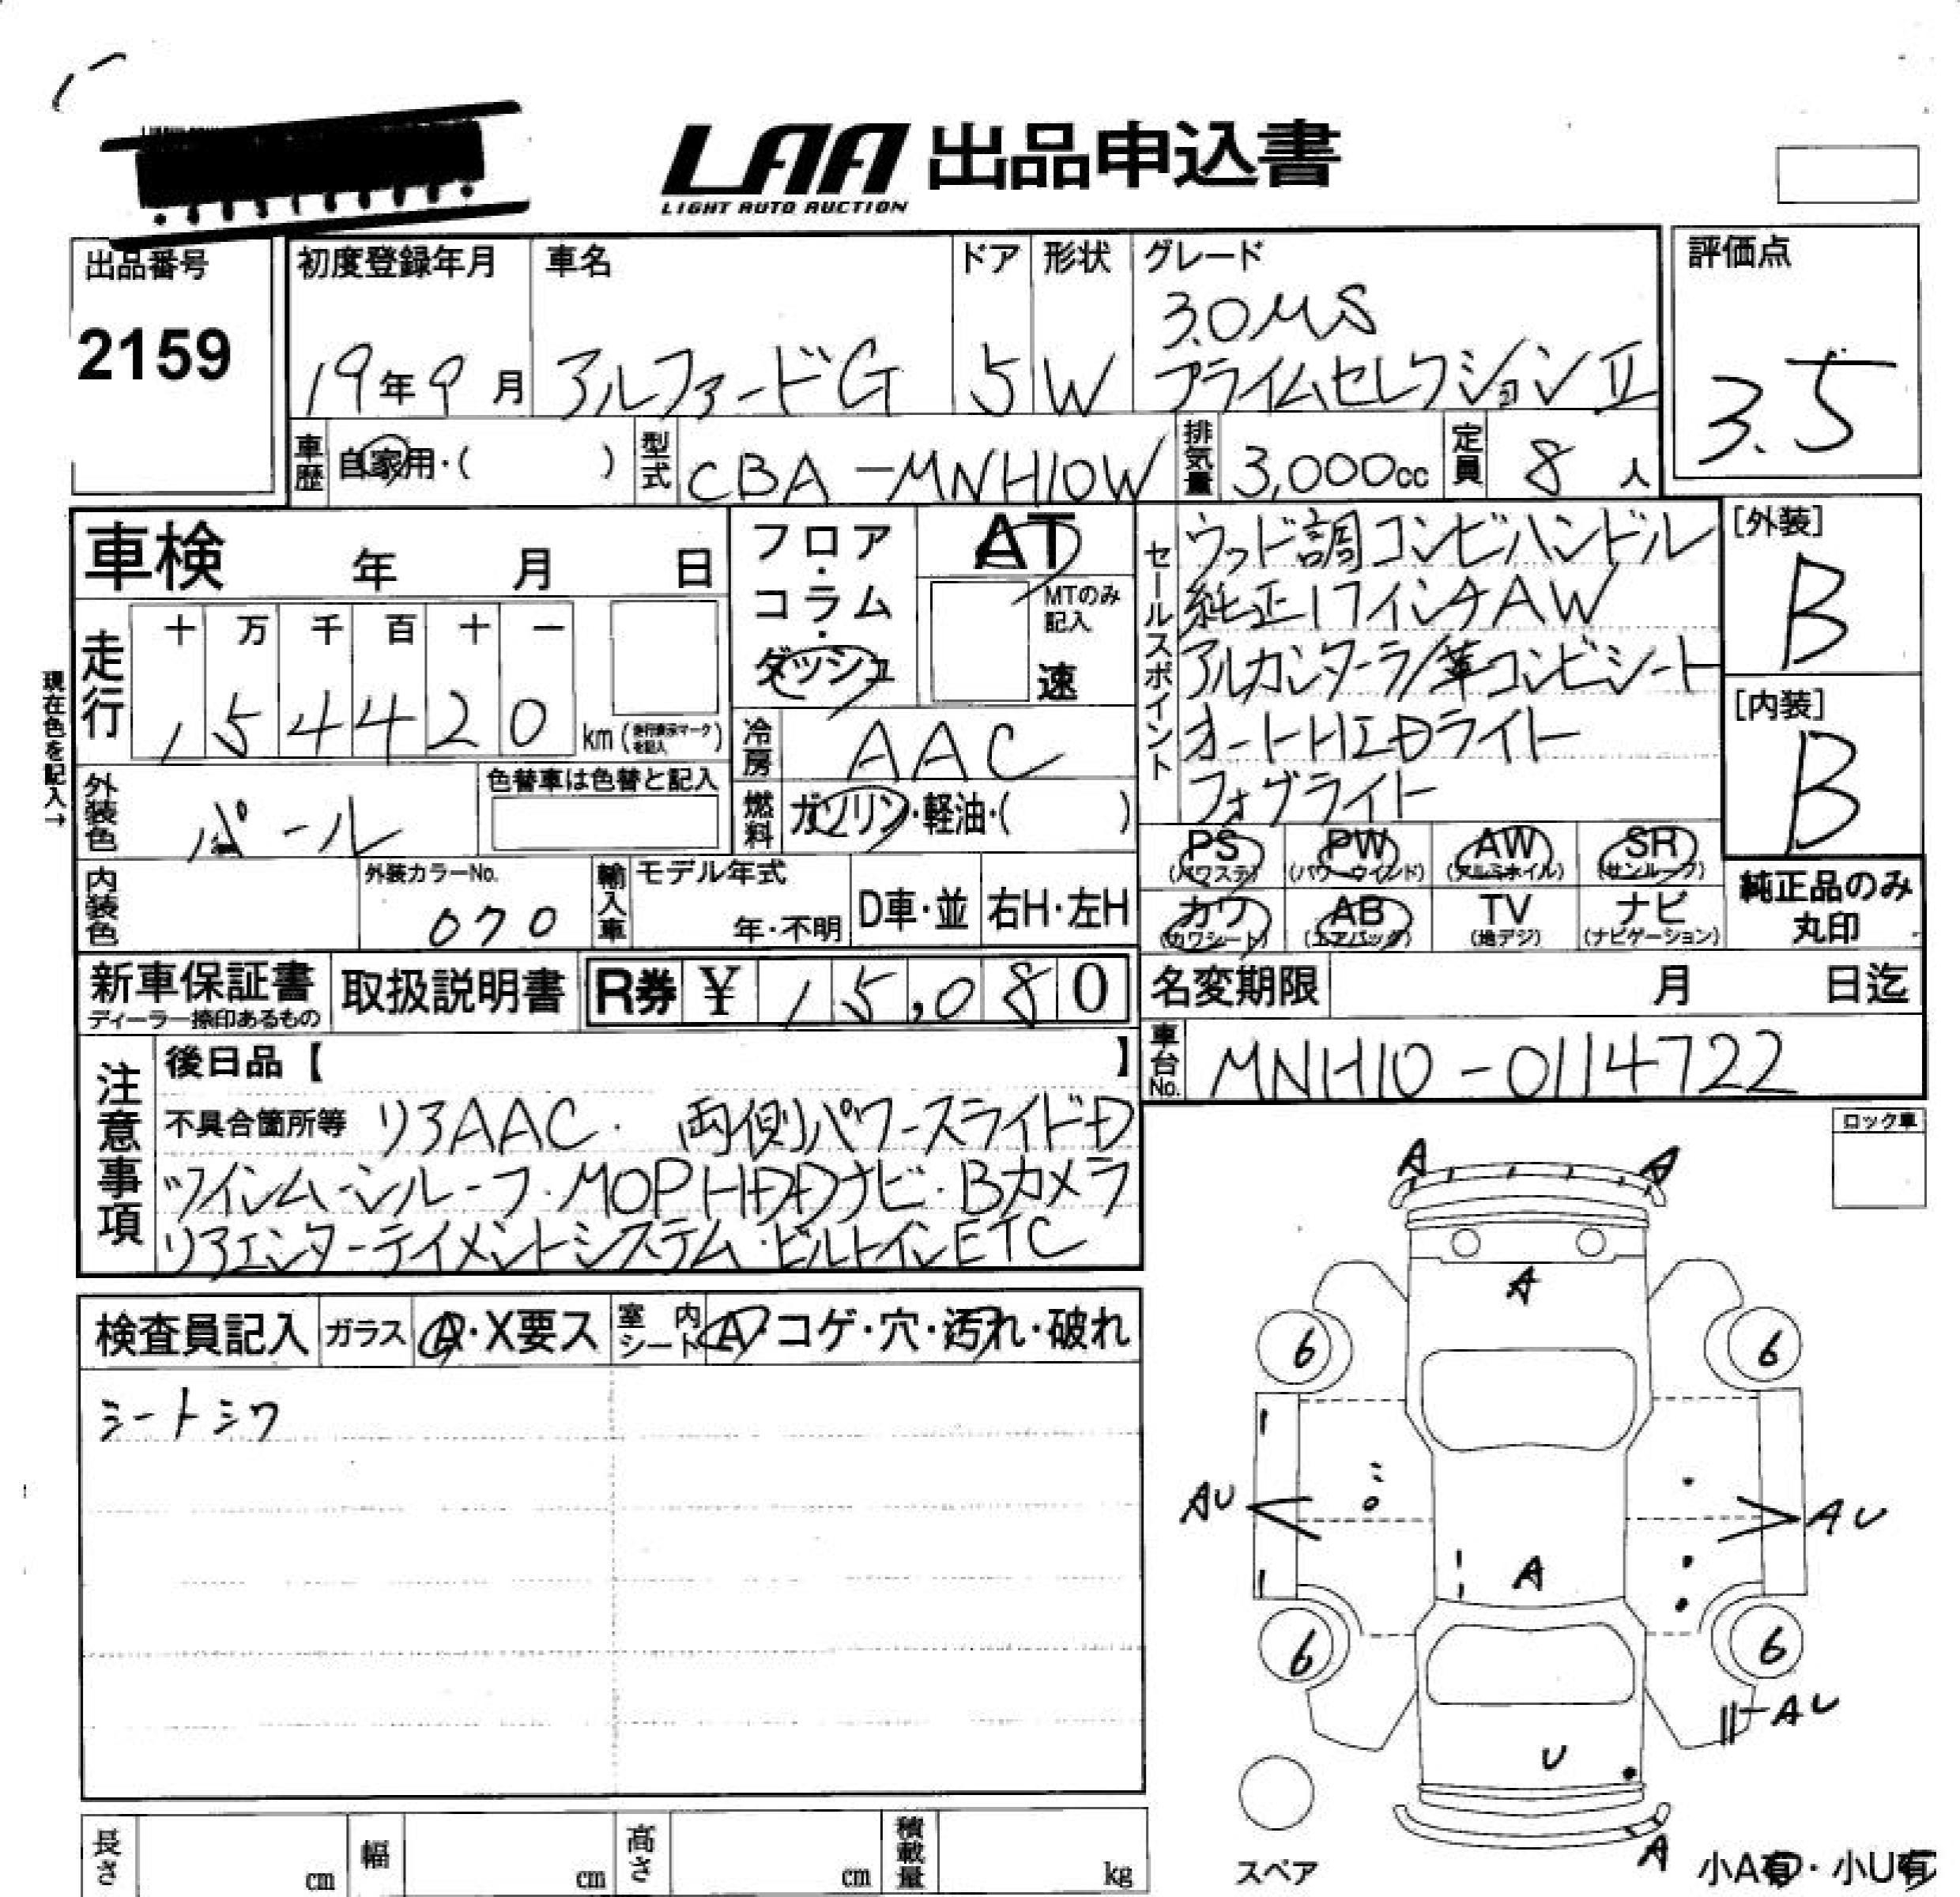 LAA 出品申込書
LIGHT AUTO AUCTION
出品番号
2159
初度登録年月
19年9月
車名
アルファードG
ドア
5
形状
W
グレード
3.0MS
プライムセレクションⅡ
評価点
3.5
車歴
自家用・( )
型式
CBA-MNH10W
排気量
3,000cc
定員
8人
車検 年 月 日
走行
十 万 千 百 十 一
1 5 4 4 2 0 km
現在色を記入→
フロア・コラム・ダッシュ
AT
MTのみ記入
速
冷房
AAC
燃料
ガソリン・軽油・( )
セールスポイント
ウッド調コンビハンドル
純正17インチAW
アルカンターラ/革コンビシート
オートHIDライト
フォグライト
[外装]
B
[内装]
B
外装色
パール
色替車は色替と記入
内装色
外装カラーNo.
070
輸入車
モデル年式
年・不明
D車・並
右H・左H
PS (パワステ)
PW (パワーウインド)
AW (アルミホイル)
SR (サンルーフ)
カワ (カワシート)
AB (エアバッグ)
TV (地デジ)
ナビ (ナビゲーション)
純正品のみ
丸印
新車保証書
ディーラー捺印あるもの
取扱説明書
R券 ¥ 15,080
名変期限 月 日迄
車台No.
MNH10-0114722
注意事項
後日品【 】
不具合箇所等 リアAAC・両側パワースライドD
ツインムーンルーフ・MOPHDDナビ・Bカメラ
リアエンターテイメントシステム・ビルトインETC
ロック車
検査員記入
ガラス
A・X要ス
室内シート
A・コゲ・穴・汚れ・破れ
シートシワ
A A
A
6 6
AU AU
A
6 6
AU
U
A
スペア
小A有・小U有
長さ cm
幅 cm
高さ cm
積載量 kg